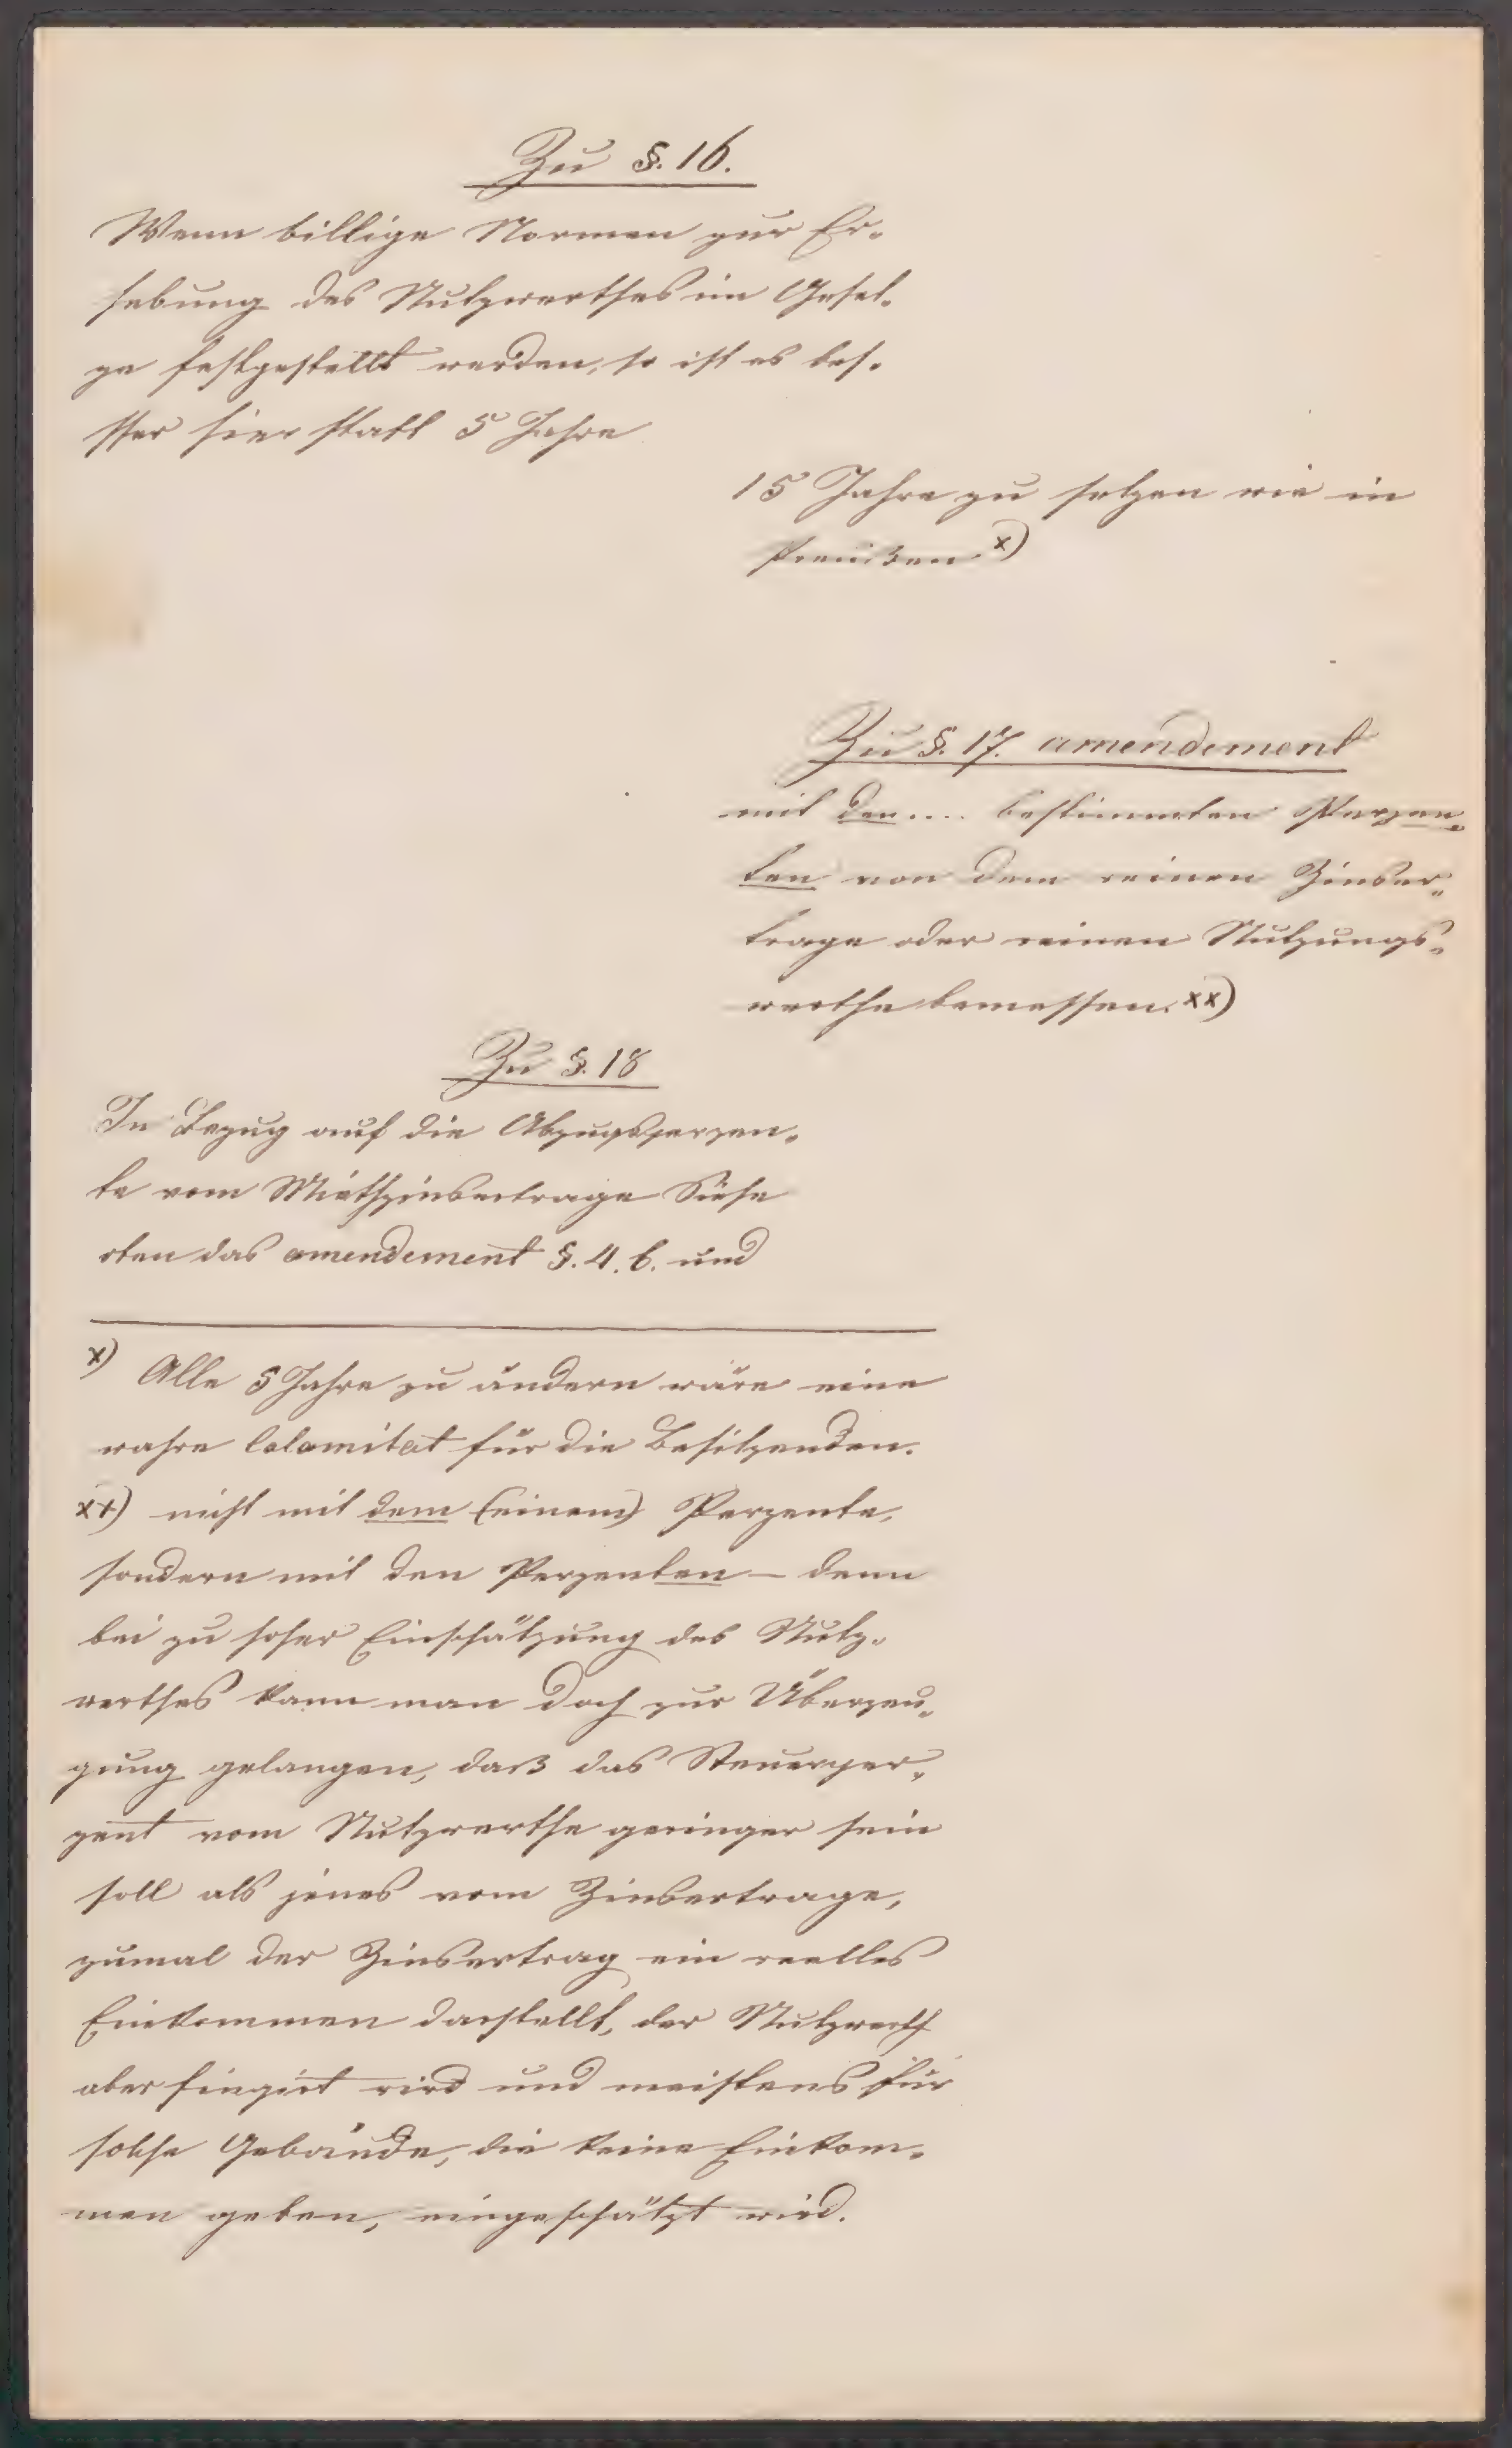 Zu §. 16.
Wenn billige Normen zur Er-
hebung des Nutzwerthes im Geset-
ze festgestellt werden, so ist es bes-
ser hier statt 5 Jahre
15 Jahre zu setzen wie in
Preußen x)
Zu §. 17. amendement
mit den .... bestimmten Perzen-
ten von dem reinen Zinser-
trage oder reinen Nutzungs-
werthe bemessen. xx)
Zu §. 18
In Bezug auf die Abzugsperzen-
te vom Miethzinsertrage Siehe
oben das amendement §. 4. b. und
x) Alle 5 Jahre zu ändern wäre eine
wahre Calamitat für die Besitzenden.
xx) nicht mit dem (einem) Perzente,
sondern mit den Perzenten – denn
bei zu hoher Einschätzung des Nutz-
werthes kann man doch zur Überzeu-
gung gelangen, daß das Steuerper-
zent vom Nutzwerthe geringer sein
soll als jenes vom Zinsertrage,
zumal der Zinsertrag ein reelles
Einkommen darstellt, der Nutzwerth
aber fingirt wird und meistens für
solche Gebäude, die keine Einkom-
men geben, eingeschätzt wird.